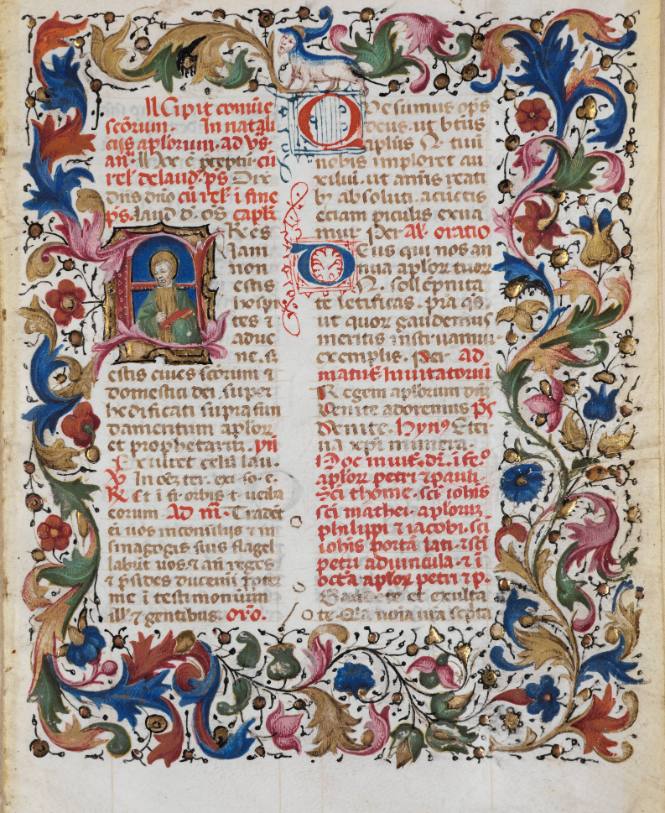 Incipit comune
scorum. In natali
ciis aplorum. ad vs.
an.
rel de laud. ps. Dixit
dns dno cu rel i fine
ps. laud. d. os capl.
Res
Iam
non
estis
hospi
tes et
adue
ne. s;
estis ciues scorum et
domestici dei. super
hedificati supra fun
damentum aplor
et prophetarum. ym
Exultet celum lau.
V In oem ter. exi. so. e.
R Et i fi. orbis t. uerba
eorum. Ad m. Tradent
ei uos inconsiliis et in
sinagogis suis flagel
labut uos et an reges
et psides ducemi ppter
me i testimonium
ill et gentibus. Oro.
Oncede sumus ops
deus. ut btus
aplus N. tuus
nobis imploret au
xilium. ut a nris reati
b absoluti. a cuctis
etiam piculis exua
mur. Per. Alia oratio
Deus qui nos an
nua aplor tuor
N. sollepnita
te letificas. pra qs.
ut quor gaudemus
meritis instruamur
exemplis. Per. ad
matut. Inuitatorium
Regem aplorum dnm
Uenite adoremus ps
Uenite. Hynus Eter
na xpi munera.
Hoc inuit. dr. i fe
aplor petri et pauli.
sci thome. sci iohis
sci mathei. aplorum
philipi et iacobi. sci
iohis porta lati. et sci
petri aduincula. et i
octa aplor petri et p.
Gaudete et exulta
te. Qa noia ura scpta